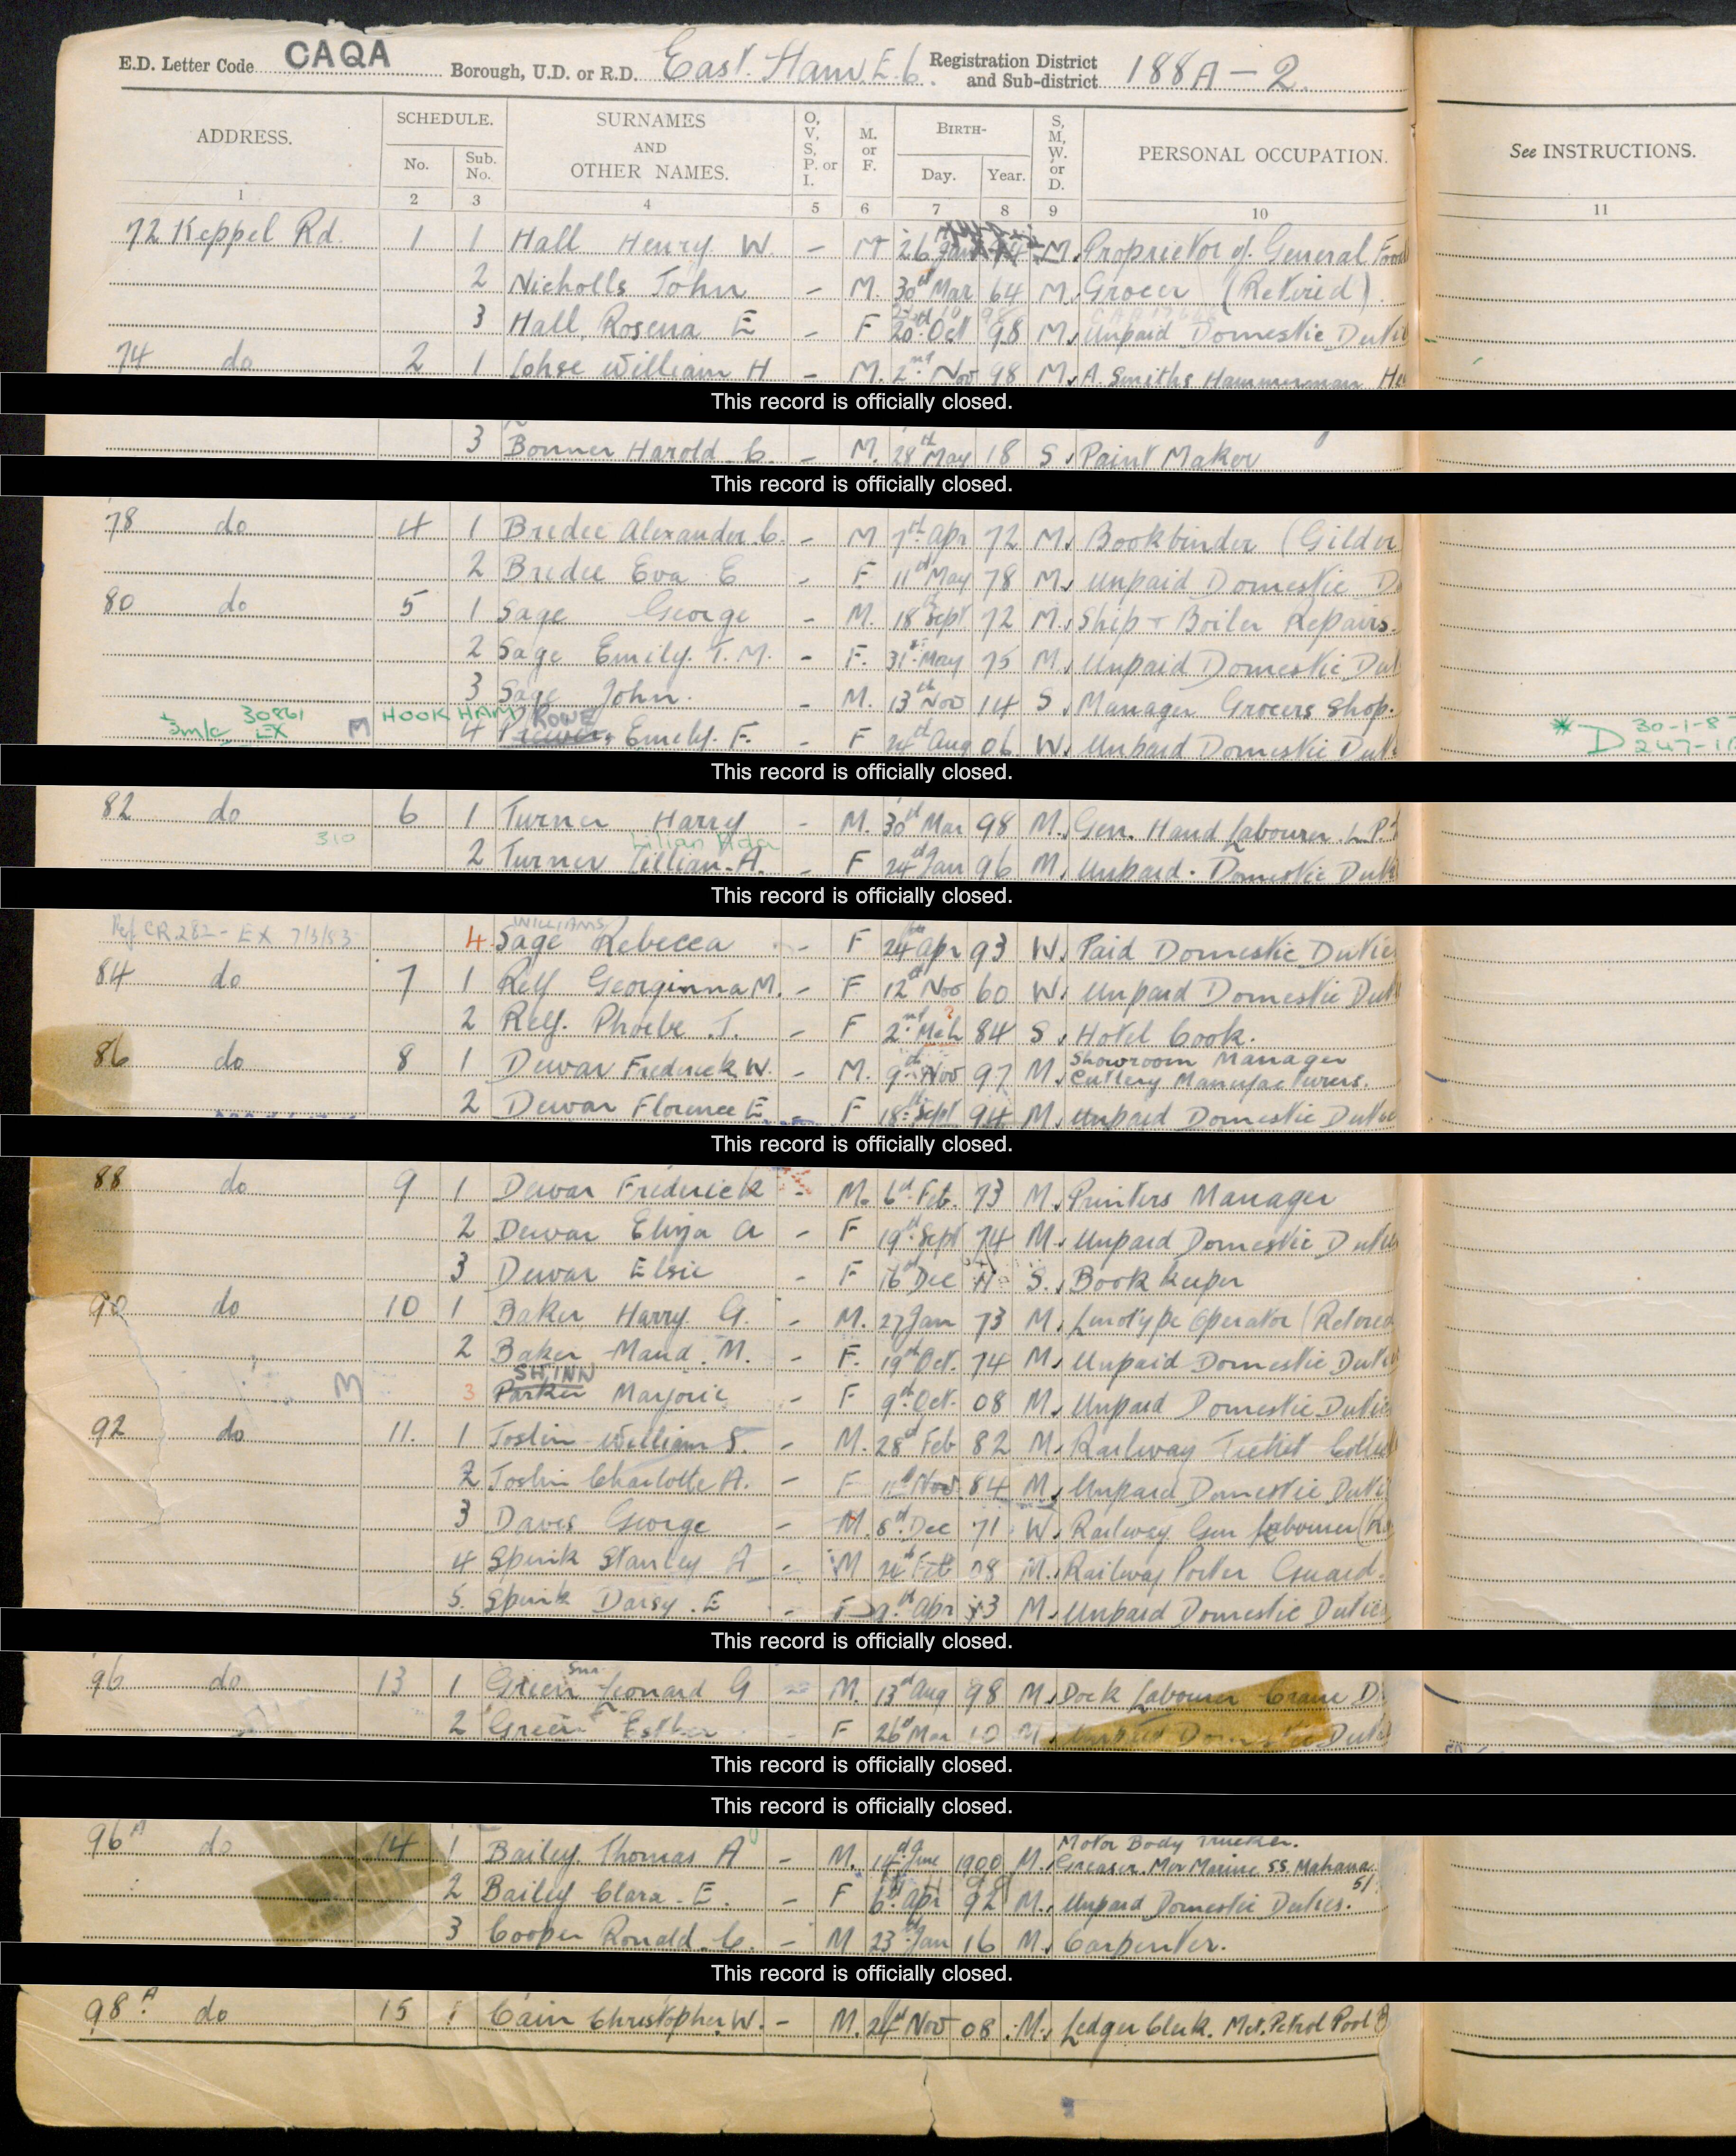 E.D. Letter Code CAQA Borough, U.D. or R.D. East Ham E.6. Registration District and Sub-district 188A-2.
ADDRESS. SCHEDULE. No. Sub. No. SURNAMES AND OTHER NAMES. O, V, S, P. or I. M. or F. BIRTH- Day. Year. S, M, W. or D. PERSONAL OCCUPATION. See INSTRUCTIONS.
1 2 3 4 5 6 7 8 9 10 11
72 Keppel Rd. 1 1 Hall Henry W. - M 26 Jan 94 M. Proprietor of General Food
2 Nicholls John - M. 30th Mar 64 M. Grocer (Retired).
3 Hall Rosena E - F 20th Oct 98 M. Unpaid Domestic Dutie
74 do 2 1 Lohse William H - M. 2nd Nov 98 M. A. Smiths Hammerman He
This record is officially closed.
3 Bonner Harold C. - M. 28th May 18 S. Paint Maker
This record is officially closed.
78 do 4 1 Bredee Alexander C. - M 7th Apr 72 M. Bookbinder (Gilder
2 Bredee Eva E - F. 11th May 78 M. Unpaid Domestic D
80 do 5 1 Sage George - M. 18 Sept 72 M. Ship + Boiler Repairs.
2 Sage Emily. T. M. - F. 31st May 75 M. Unpaid Domestic Dut
3 Sage John. - M. 13th Nov 14 S. Manager Grocers Shop.
30861 EX M HOOK HAM ROWE
4 Emily. F. - F 24th Aug 06 W. Unpaid Domestic Dut
* D 30-1-8
247-1
This record is officially closed.
82 do 6 1 Turner Harry - M. 30th Mar 98 M. Gen. Hand Labourer. L.P.
310 Lilian Ada
2 Turner Lillian. A. - F 24th Jan 96 M. Unpaid. Domestic Duti
This record is officially closed.
Ref CR 282 - EX 7/3/83 WILLIAMS
4 Sage Rebecca - F 24th Apr 93 W. Paid Domestic Dutie
84 do 7 1 Relf Georginna M. - F 12th Nov 60 W. Unpaid Domestic Dut
2 Relf. Phoebe J. - F 2nd Mch ? 84 S. Hotel Cook.
86 do 8 1 Dewar Frederick W. - M. 9th Nov 97 M. Showroom Manager
Cutlery Manufacturers.
2 Dewar Florence E - F 18th Sept 94 M. Unpaid Domestic Dutie
This record is officially closed.
88 do 9 1 Dewar Frederick - M. 6th Feb. 73 M. Printers Manager
2 Dewar Eliza A - F 19th Sept 74 M. Unpaid Domestic Duties
3 Dewar Elsie - F 16th Dec 11 S. Book keeper
90 do 10 1 Baker Harry G. - M. 27 Jan 73 M. Linotype Operator (Retired
2 Baker Maud. M. - F. 19th Oct. 74 M. Unpaid Domestic Duti
M SHINN
3 Parker Marjorie - F 9th Oct. 08 M. Unpaid Domestic Dutie
92 do 11. 1 Joslin William S. - M. 28th Feb 82 M. Railway Ticket Collec
2 Joslin Charlotte A. - F 11th Nov. 84 M. Unpaid Domestic Duti
3 Davis George - M. 8th Dec 71 W. Railway Gen Labourer (R
4 Spink Stanley A - M 24th Feb 08 M. Railway Porter Guard.
5. Spink Daisy. E - F 9th Apr 13 M. Unpaid Domestic Dutie
This record is officially closed.
96 do 13 1 Green Snr Leonard G - M. 13th Aug 98 M. Dock Labourer Crane D
2 Green Esther - F 26th Mar 10 M. Unpaid Domestic Duti
This record is officially closed.
This record is officially closed.
96A do 14 1 Bailey. Thomas A - M. 14th June 1900 M. Motor Body Trucker.
Greaser. Mer Marine SS. Mahana
51
2 Bailey Clara. E. - F 6th Apr 92 M. Unpaid Domestic Duties.
3 Cooper Ronald. C. - M 23rd Jan 16 M. Carpenter.
This record is officially closed.
98A do 15 1 Cain Christopher W. - M. 24th Nov 08. M. Ledger Clerk. Met. Petrol Pool B